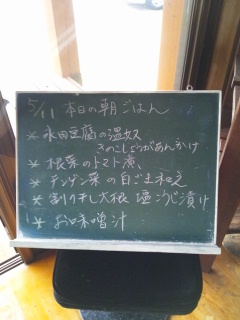 5/11 本日の朝ごはん
* 永田豆腐の温奴
きのこしょうがあんかけ
* 根菜のトマト煮
* チンゲン菜の白ごま和え
* 割り干し大根 塩こうじ漬け
* お味噌汁